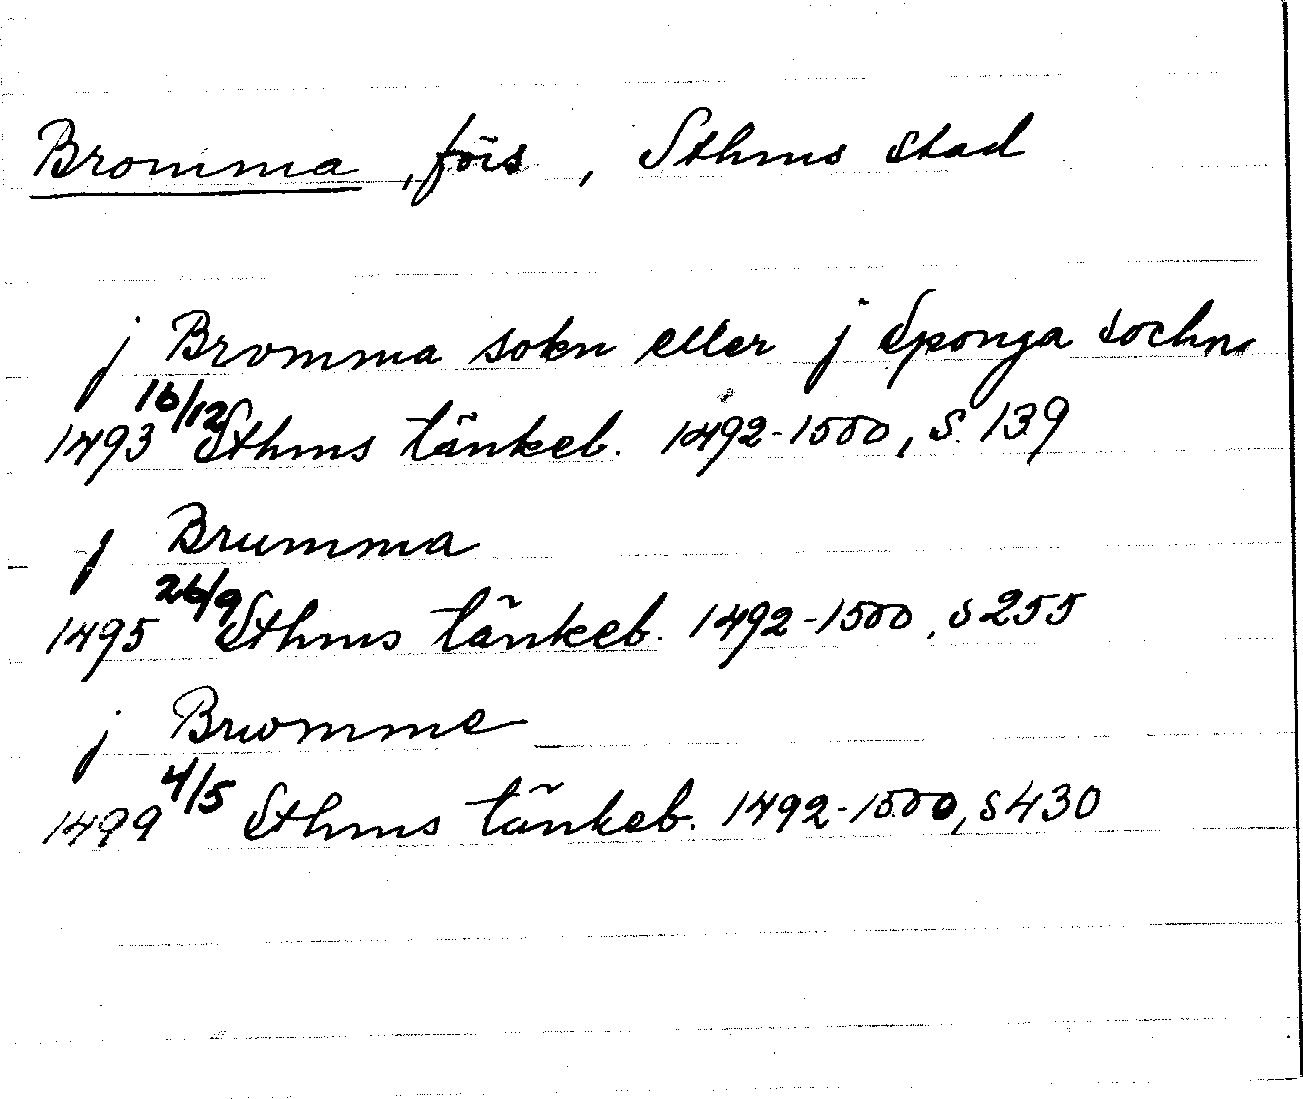 Bromma, förs, Sthms stad
j Bromma sokn eller j Sponga sochn
1493 16/12 Sthms tänkeb. 1492-1500, s. 139
j Brumma
1495 26/9 Sthms tänkeb. 1492-1500, s 255
j Bruomme
1499 4/5 Sthms tänkeb. 1492-1500, s 430